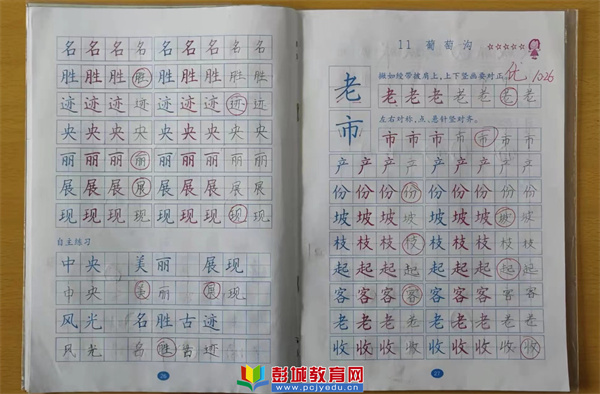 名名名名名名名名名
胜胜胜胜胜胜胜胜胜
迹迹迹迹迹迹迹迹迹
央央央央央央央央央
丽丽丽丽丽丽丽丽丽
展展展展展展展展展
现现现现现现现现现
自主练习
中央 美丽 展现
中央 美丽 展现
风光 名胜古迹
风光 名胜古迹
26
11 葡萄沟
老
撇如绞带披肩上,上下竖画要对正。
优 10.26
老老老老老老
市
左右对称,点、悬针竖对齐。
市市市市市市
产产产产产产产产产
份份份份份份份份份
坡坡坡坡坡坡坡坡坡
枝枝枝枝枝枝枝枝枝
起起起起起起起起起
客客客客客客客客客
老老老老老老老老
收收收收收收收收
27
彭城教育网
www.pcjyedu.cn